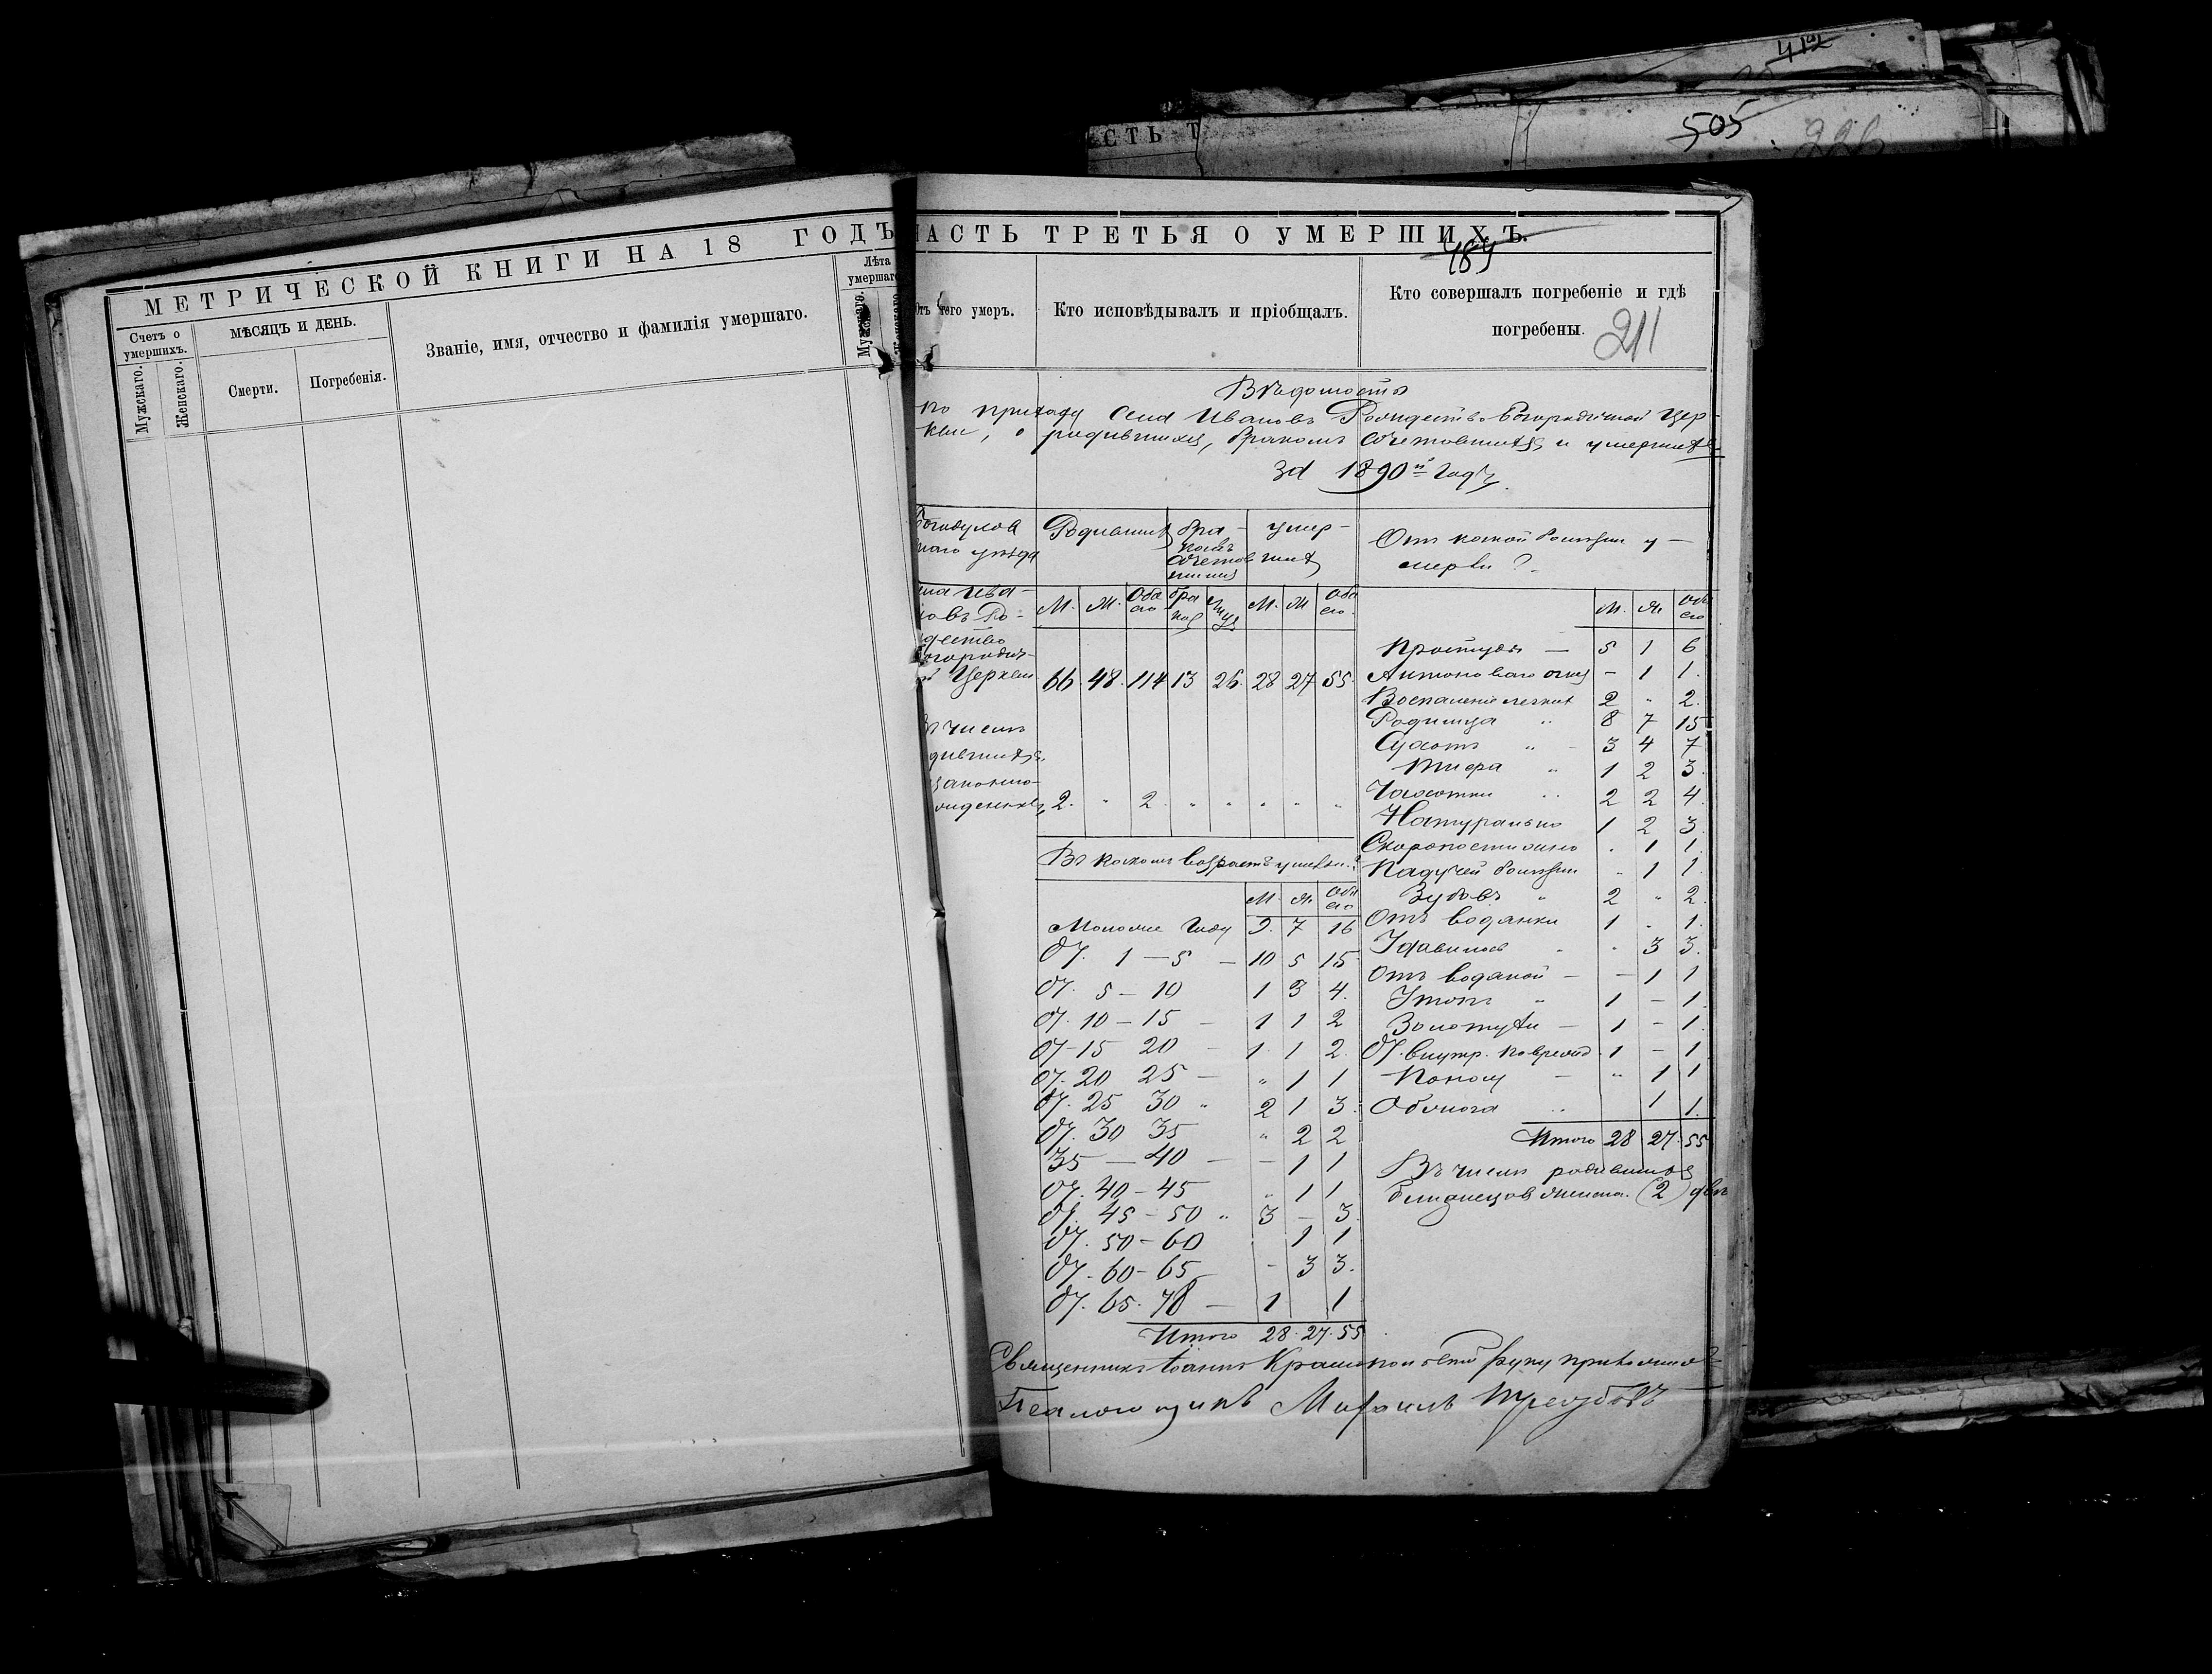 412
505
226
СТЬ Т
МЕТРИЧЕСКОЙ КНИГИ НА 18 ГОДЪ
Счетъ о умершихъ.
Мужскаго.
Женскаго.
МѢСЯЦЪ И ДЕНЬ.
Смерти.
Погребенія.
Званіе, имя, отчество и фамилія умершаго.
Лѣта умершаго
Мужскаго.
Женскаго.
ЧАСТЬ ТРЕТЬЯ О УМЕРШИХЪ.
489
Отъ чего умеръ.
Кто исповѣдывалъ и пріобщалъ.
Кто совершалъ погребеніе и гдѣ
погребены.
211
Вѣдомость
по приходу Села Ивановъ Рождество Богородичной Цер-
кви, о родившихся, бракомъ сочетовшихся и умершихъ
за 1890й Годъ.
уѣзда
Родившихся
бра-
комъ
сочетов
шихся
умер-
шихъ
Отъ какой болѣзни у-
мерли?
ела Ива-
новъ Ро-
дество
огородич-
Церкви
М. Ж. Обоего бра ковъ лицъ М. Ж. Обоего
66. 48. 114 13 26. 28 27 55.
Въ числѣ
дившихся
законно-
рожденныхъ 2. " 2. " " " " "
Въ какомъ возрастѣ умерли?
М. Ж. Обоего
Моложе Году 9. 7 16
От. 1 — 5 — 10 5 15
От. 5 — 10 1 3 4.
От. 10 — 15 — 1 1 2
От 15 20 — 1. 1 2.
От. 20 25 — " 1 1
От. 25 30 " 2 1 3.
От. 30 35 " 2 2
35 — 40 — — 1 1
От. 40 — 45 " 1 1
От. 45 — 50 " 3 — 3.
От. 50 — 60 1 1
От. 60 — 65 - 3 3.
От. 65. 78 — 1 1
Итого 28. 27. 55
М. Ж. Обоего
Простуды — 5 1 6
Антонового огня — 1 1.
Воспаленіе легкихъ 2 " 2.
Родимца " 8 7 15
Сухотъ " 3 4 7
Тифа " 1 2 3.
Чахотки " 2 2 4.
Натурально 1 2 3.
Скоропостижно . 1 1.
Падучей болѣзни " 1 1.
Зубовъ " 2 " 2.
Отъ водянки 1 . 1.
Удавился " " 3 3.
Отъ водяной — — 1 1
Утопъ " 1 — 1.
Золотухи — 1 — 1.
От. внутр. поврежд. 1 — 1.
Поносу — " 1 1
Обжога " 1 1.
Итого 28 27. 55
Въ числѣ родившихся
близнецовъ женска. (2) двѣ
Священникъ Іоаннъ руку приложилъ
Псаломщикъ Михаилъ